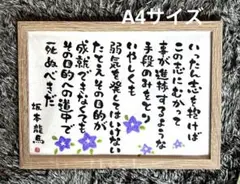 A4サイズ
いったん志を抱けば
この志にむかって
事が進捗するような
手段のみをとり
いやしくも
弱気を発してはいけない
たとえその目的が
成就できなくても
その目的への道中で
死ぬべきだ
坂本龍馬